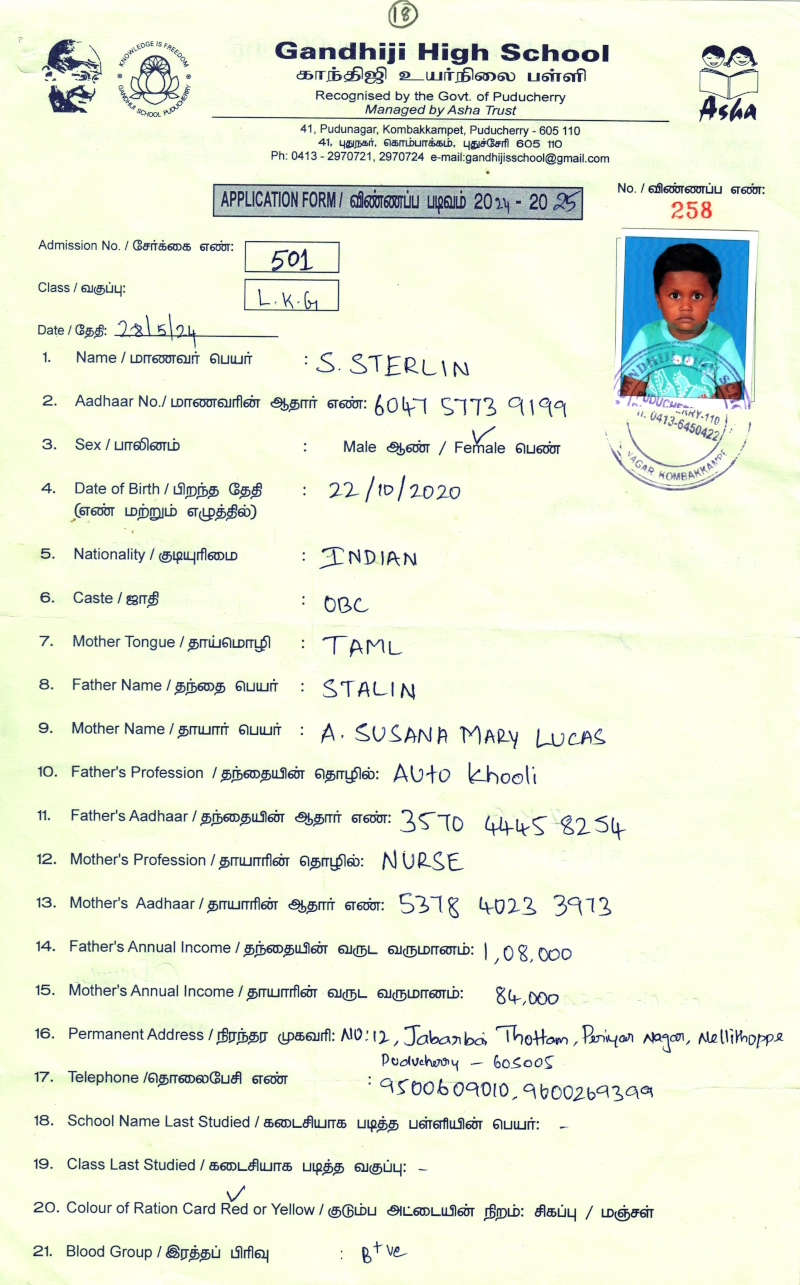 18
KNOWLEDGE IS FREEDOM
GANDHIJI SCHOOL PUDUCHERRY
Gandhiji High School
காந்திஜி உயர்நிலை பள்ளி
Recognised by the Govt. of Puducherry
Managed by Asha Trust
Asha
41, Pudunagar, Kombakkampet, Puducherry - 605 110
41, புதுநகர், கொம்பாக்கம், புதுச்சேரி 605 110
Ph: 0413 - 2970721, 2970724 e-mail:gandhijisschool@gmail.com
APPLICATION FORM / விண்ணப்ப படிவம் 2024 - 2025
No. / விண்ணப்ப எண்:
258
Admission No. / சேர்க்கை எண்: 501
Class / வகுப்பு: L.K.G
Date / தேதி: 28/5/24
1. Name / மாணவர் பெயர் : S. STERLIN
2. Aadhaar No./ மாணவரின் ஆதார் எண்: 6047 5773 9199
PUDUCHERRY-110
0413-6450422
NAGAR KOMBAKKAMPET
3. Sex / பாலினம் : Male ஆண் / Female பெண்
4. Date of Birth / பிறந்த தேதி : 22/10/2020
(எண் மற்றும் எழுத்தில்)
5. Nationality / குடியுரிமை : INDIAN
6. Caste / ஜாதி : OBC
7. Mother Tongue / தாய்மொழி : TAML
8. Father Name / தந்தை பெயர் : STALIN
9. Mother Name / தாயார் பெயர் : A. SUSANA MARY LUCAS
10. Father's Profession / தந்தையின் தொழில்: AUto Khooli
11. Father's Aadhaar / தந்தையின் ஆதார் எண்: 3570 4445 8254
12. Mother's Profession / தாயாரின் தொழில்: NURSE
13. Mother's Aadhaar / தாயாரின் ஆதார் எண்: 5378 4023 3973
14. Father's Annual Income / தந்தையின் வருட வருமானம்: 1,08,000
15. Mother's Annual Income / தாயாரின் வருட வருமானம்: 84,000
16. Permanent Address / நிரந்தர முகவரி: NO: 12, Jabarbai Thottam, Periyar Nagar, Nellithoppe
Puducherry - 605005
17. Telephone /தொலைபேசி எண் : 9500609010, 9600269399
18. School Name Last Studied / கடைசியாக படித்த பள்ளியின் பெயர்: -
19. Class Last Studied / கடைசியாக படித்த வகுப்பு: -
20. Colour of Ration Card Red or Yellow / குடும்ப அட்டையின் நிறம்: சிகப்பு / மஞ்சள்
21. Blood Group / இரத்தப் பிரிவு : B+ve